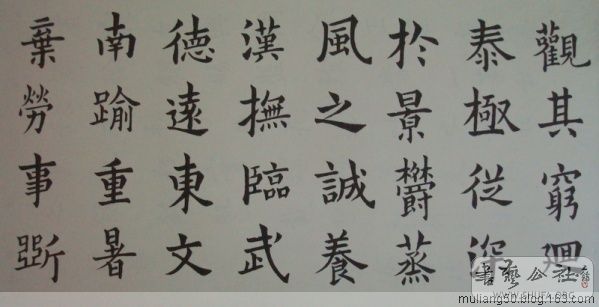 觀其窮
泰極從深
於景欝蒸
風之誠養
漢撫臨武
德遠東文
南踰重暑
棄勞事斲
書藝公社
WWW.SHUFA.ORG
muliang50.blog.163.com